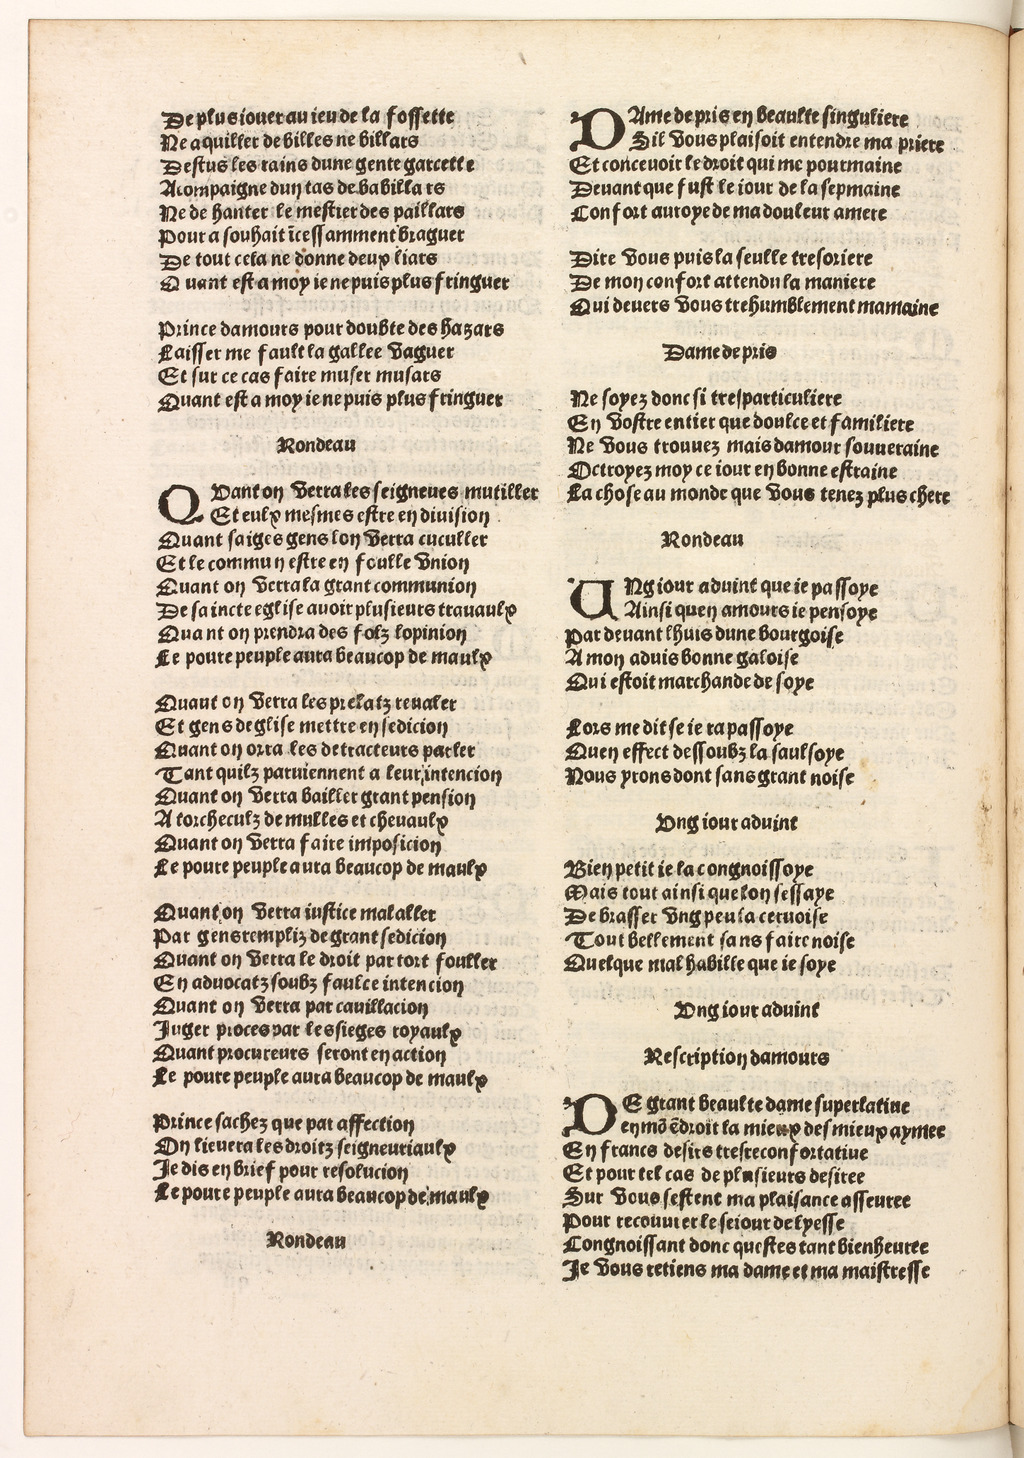 De plus iouer au ieu de la fossette
Ne a quiller de billes ne billars
Dessus les rains dune gente garcette
Acompaigne dun tas de babillars
Ne de hanter le mestier des paillars
Pour a souhait icessamment braguer
De tout cela ne donne deux liars
Quant est a moy ie ne puis plus fringuer
Prince damours pour doubte des hazars
Laisser me fault la gallee vaguer
Et sur ce cas faire muser musars
Quant est a moy ie ne puis plus fringuer
Rondeau
QVant on verra les seigneues mutiller
Et eulx mesmes estre en diuision
Quant saiges gens lon verra cuculler
Et le commun estre en foulle vnion
Quant on verra la grant communion
De saincte eglise auoir plusieurs trauaulx
Quant on prendra des folz lopinion
Le poure peuple aura beaucop de maulx
Quant on verra les prelatz reualer
Et gens deglise mettre en sedicion
Quant on orra les detracteurs parler
Tant quilz paruiennent a leur intencion
Quant on verra bailler grant pension
A torcheculz de mulles et cheuaulx
Quant on verra faire imposicion
Le poure peuple aura beaucop de maulx
Quant on verra iustice mal aller
Par gens rempliz de grant sedicion
Quant on verra le droit par tort fouller
En aduocatz soubz faulce intencion
Quant on verra par cauillacion
Juger proces par les sieges royaulx
Quant procureurs seront en action
Le poure peuple aura beaucop de maulx
Prince sachez que par affection
On lieuera les droitz seigneuriaulx
Je dis en brief pour resolucion
Le poure peuple aura beaucop de maulx
Rondeau
DAme de pris en beaulte singuliere
Sil vous plaisoit entendre ma priere
Et conceuoir le droit qui me pourmaine
Deuant que fust le iour de la sepmaine
Confort auroye de ma douleur amere
Dire vous puis la seulle tresoriere
De mon confort attendu la maniere
Qui deuers vous trehumblement mamaine
Dame de pris
Ne soyez donc si tresparticuliere
En vostre entier que doulce et familiere
Ne vous trouuez mais damour souueraine
Octroyez moy ce iour en bonne estraine
La chose au monde que vous tenez plus chere
Rondeau
UNg iour aduint que ie passoye
Ainsi quen amours ie pensoye
Par deuant lhuis dune bourgoise
A mon aduis bonne galoise
Qui estoit marchande de soye
Lors me dit se ie rapassoye
Quen effect dessoubz la saulsoye
Nous yrons dont sans grant noise
Vng iour aduint
Bien petit ie la congnoissoye
Mais tout ainsi que lon sessaye
De brasser vng peu la ceruoise
Tout bellement sans faire noise
Quelque mal habille que ie soye
Vng iour aduint
Rescription damours
DE grant beaulte dame superlatiue
en mō ēdroit la mieux des mieux aymee
En francs desirs tresreconfortatiue
Et pour tel cas de plusieurs desiree
Sur vous sestent ma plaisance asseuree
Pour recouurer le seiour de lyesse
Congnoissant donc questes tant bienheuree
Je vous retiens ma dame et ma maistresse